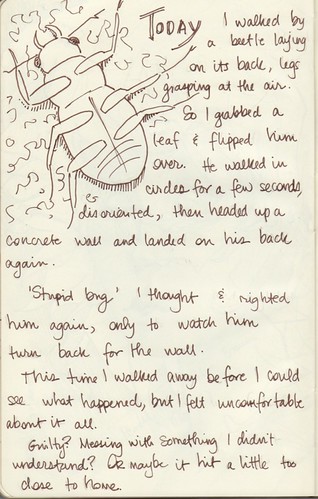 TODAY I walked by
a beetle laying
on its back, legs
grasping at the air.
So I grabbed a
leaf & flipped him
over. He walked in
circles for a few seconds,
disoriented, then headed up a
concrete wall and landed on his back
again.
'Stupid bug' I thought & righted
him again, only to watch him
turn back for the wall.
This time I walked away before I could
see what happened, but I felt uncomfortable
about it all.
Guilty? Messing with something I didn't
understand? Or maybe it hit a little too
close to home.